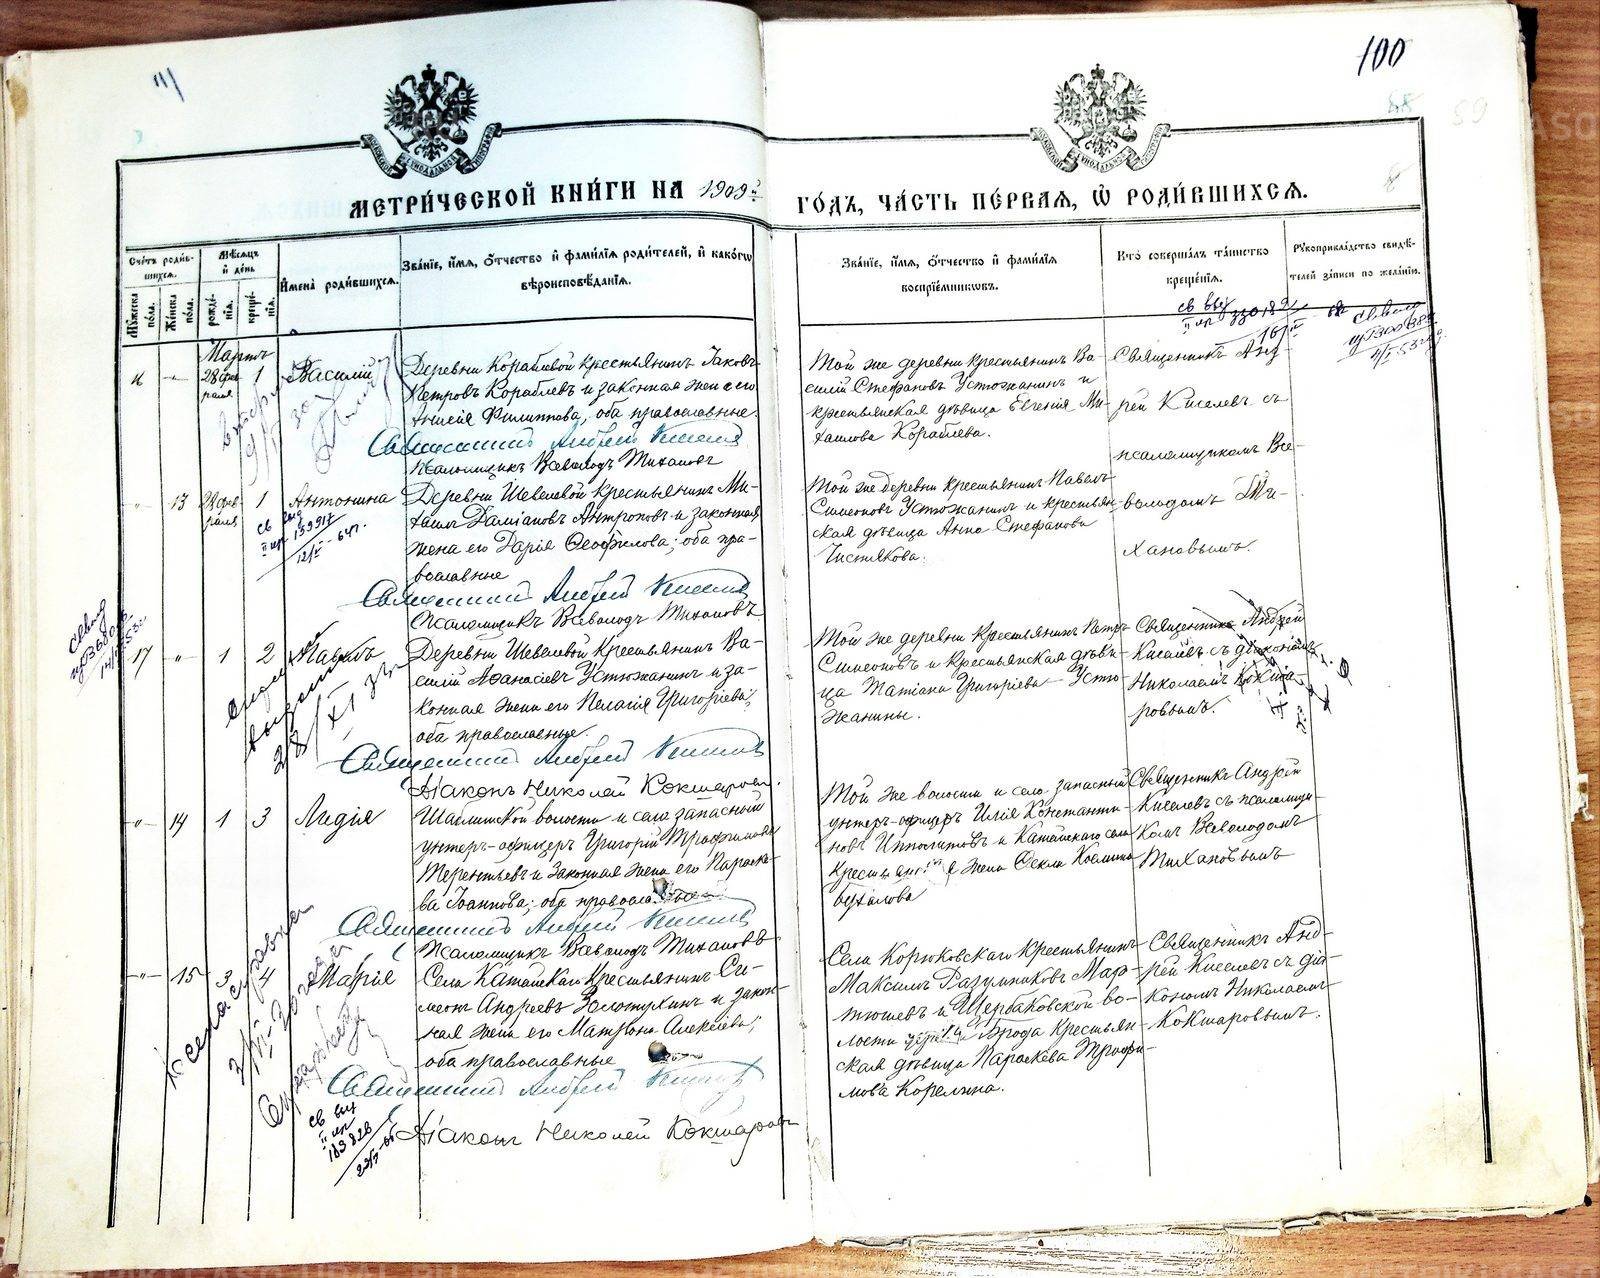 111
100
88
89
МОСКОВСКОЙ СѴНОДАЛЬНОЙ ТИПОГРАФІИ
МЕТРИ́ЧЕСКОЙ КНИ́ГИ НА 1909 й ГО́ДЪ, ЧА́СТЬ ПЕ́РВАЯ, Ѽ РОДИ́ВШИХСЯ.
Сче́тъ роди́вшихся.
Мѣ́сяцъ и҆ де́нь
Мꙋ́жеска по́ла.
Же́нска по́ла.
рожде́нія.
креще́нія.
И҆мена̀ роди́вшихся.
Зва́ніе, и҆́мя, ѻ҆́тчество и҆ фами́лія роди́телей, и҆ како́гѡ вѣроисповѣ́данія.
Зва́ніе, и҆́мя, ѻ҆́тчество и҆ фами́лія воспріе́мниковъ.
Кто̀ соверша́лъ та́инство креще́нія.
Рꙋкоприкла́дство свидѣ́телей за́писи по жела́нію.
Мартъ
16 -"- 28 фев раля 1 Василий
Деревни Кораблевой крестьянинъ Іаковъ
Петровъ Кораблевъ и законная жена его
Филиппова, оба православные.
Священникъ Андрей Киселевъ
Псаломщикъ Всеволодъ Тихановъ
Той же деревни крестьянинъ Ва-
силій Стефановъ Устюжанинъ и
крестьянская дѣвица Евгенія Ми-
хаилова Кораблева.
Священникъ Анд-
рей Киселевъ съ
псаломщикомъ Все-
володомъ Ти-
хановымъ.
-"- 13 28 фев раля 1 Антонина
Деревни Шевелевой крестьянинъ Ми-
хаилъ Даміановъ Антроповъ и законная
жена его Дарія Ѳеофилова; оба пра-
вославные
Священникъ Андрей Киселевъ
Псаломщикъ Всеволодъ Тихановъ
Той же деревни крестьянинъ Павелъ
Симеоновъ Устюжанинъ и крестьян-
ская дѣвица Анна Стефанова
Чистякова.
17 -"- 1 2 Павелъ
Деревни Шевелевой крестьянинъ Ва-
силій Аѳанасіевъ Устюжанинъ и за-
конная жена его Пелагія Григоріева;
оба православные.
Священникъ Андрей Киселевъ
Діаконъ Николай Кокшаровъ.
Той же деревни крестьянинъ Петръ
Симеоновъ и крестьянская дѣви-
ца Татіана Григоріева Устю-
жанины.
Священникъ Андрей
Киселевъ съ діакономъ
Николаемъ Кокша-
ровымъ.
-"- 14 1 3 Лидія
волости и села запасный
унтеръ-офицеръ Григорій Трофимовъ
Терентьевъ и законная жена его Параске-
ва Іоаннова; оба православные
Священникъ Андрей Киселевъ
Псаломщикъ Всеволодъ Тихановъ
Той же волости и села запасный
унтеръ-офицеръ Илія Константи-
новъ Ипполитовъ и Катайскаго села
крестьянская жена Ѳекла Козмина
Бухалова
Священникъ Андрей
Киселевъ съ псаломщи-
комъ Всеволодомъ
Тихановымъ
-"- 15 3 4 Марія
Села Катайскаго крестьянинъ Си-
меонъ Андреевъ Золотухинъ и закон-
ная жена его Матрона Алексіева;
оба православные
Священникъ Андрей Киселевъ
Діаконъ Николай Кокшаровъ
Села Корюковскаго крестьянинъ
Максимъ Разумниковъ Мар-
тюшевъ и Щербаковской во-
лости Брода крестьян-
ская дѣвица Параскева Трофи-
мова Корелина.
Священникъ Анд-
рей Киселевъ съ діа-
кономъ Николаемъ
Кокшаровымъ.